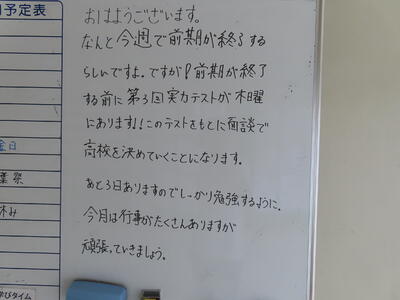 予定表
おはようございます。
なんと今週で前期が終了する
らしいですよ。ですが!前期が終了
する前に第3回実力テストが木曜
にあります!!このテストをもとに面談で
高校を決めていくことになります。
金日
あと3日ありますのでしっかり勉強するように。
葉祭
休み
今月は行事がたくさんありますが
頑張っていきましょう。
学びタイム